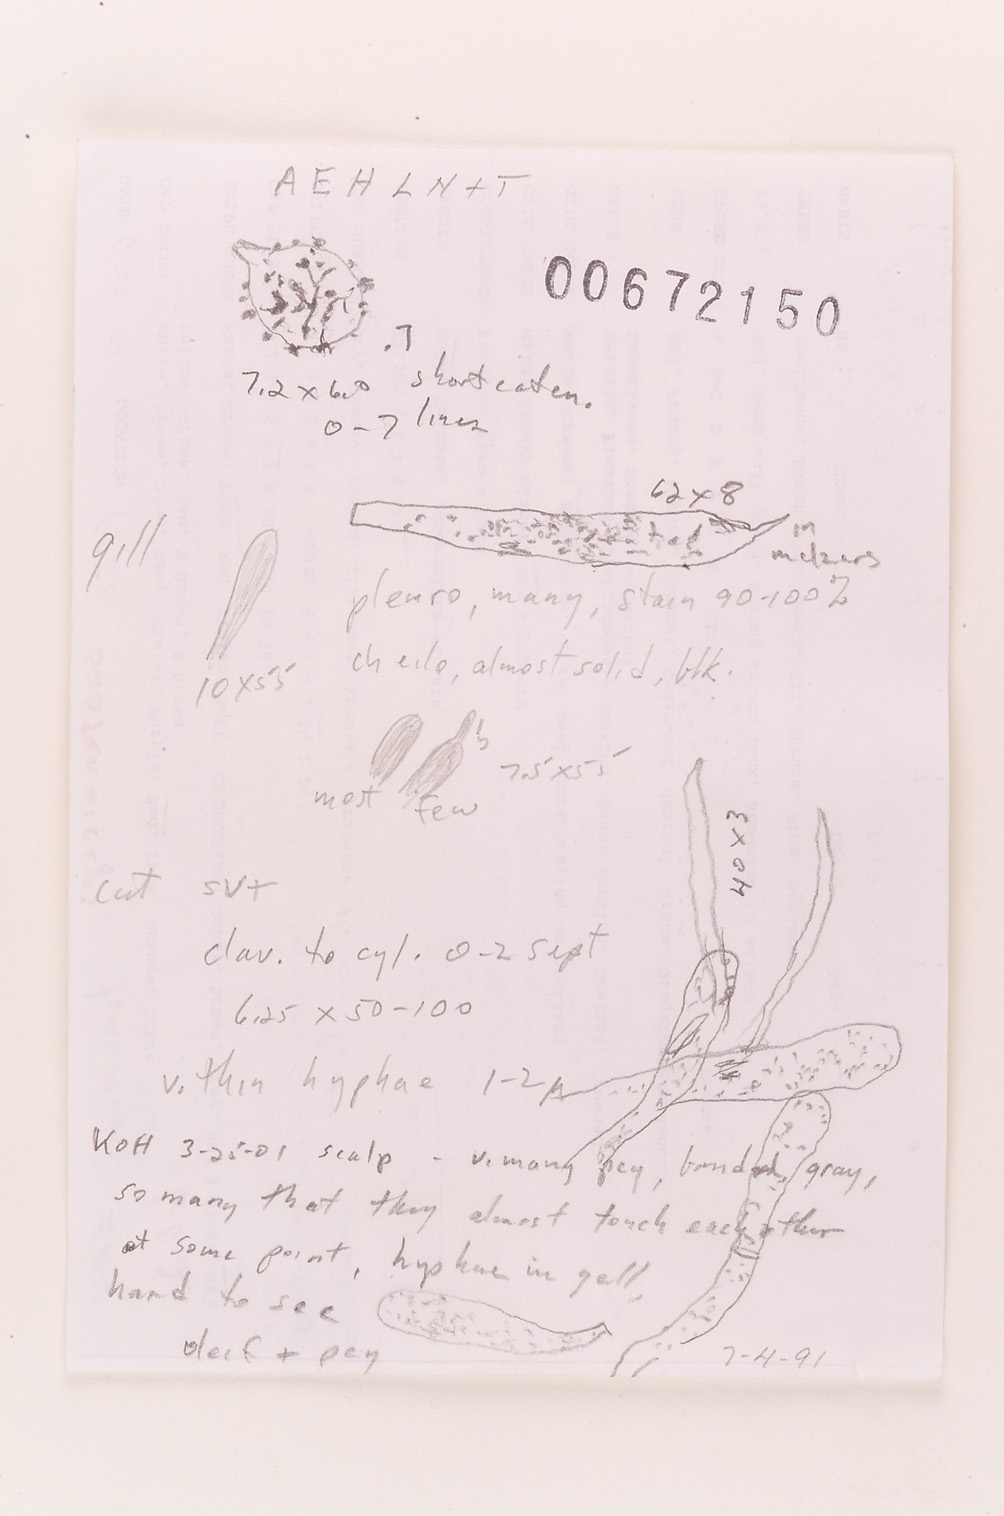 A E H L N + T
00672150
.7
7.2 x 6.0 short caten.
0-7 lines
62 x 8
in melzers
gill
pleuro, many, stain 90-100%
10 x 55
cheilo, almost solid, blk.
7.5 x 55
most few
40 x 3
cut SV+
clav. to cyl. 0-2 sept
6.25 x 50-100
v. thin hyphae 1-2µ
KOH 3-25-01 scalp - v. many pcy, banded, gray,
so many that they almost touch each other
at some point, hyphae in gell,
hard to see
+ pcy
7-4-91